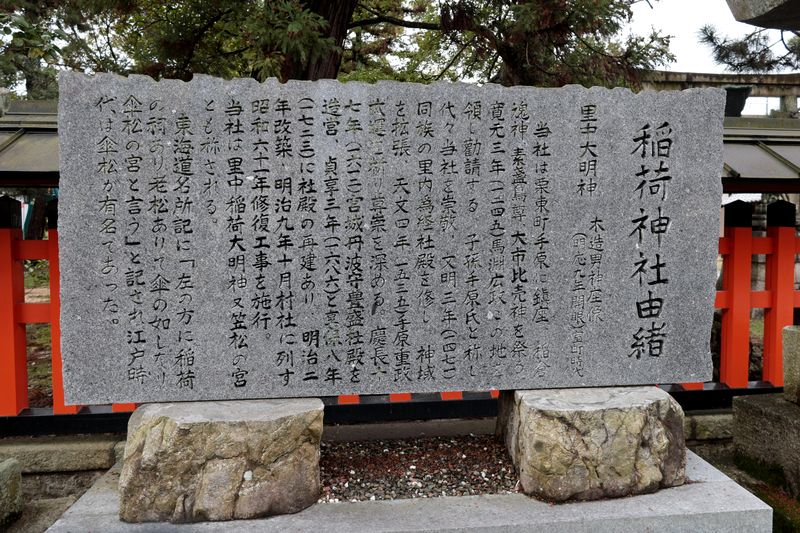 稲荷神社由緒
里中大明神 木造男神座像
(明応九年開眼)室町時代
当社は栗東町手原に鎮座 稲倉
魂神 素盞嗚尊 大市比売神を祭る
寛元三年(一二四五)馬渕広政この地を
領し勧請する 子孫手原氏と称し
代々当社を崇敬 文明三年(一四七一)
同族の里内為経社殿を修し 神域
を拡張 天文四年(一五三五)手原重政
六鍵を祈り 崇敬を深める 慶長十
七年(一六一二)宮城丹波守豊盛社殿を
造営、貞享三年(一六八六)と享保八年
(一七二三)に社殿の再建あり、明治二
年改築 明治九年十月村社に列す
昭和六十一年修復工事を施行。
当社は里中稲荷大明神 又笠松の宮
とも称される。
東海道名所記に「左の方に稲荷
の祠あり老松ありて傘の如したり
傘松の宮と言う」と記され江戸時
代は傘松が有名であった。